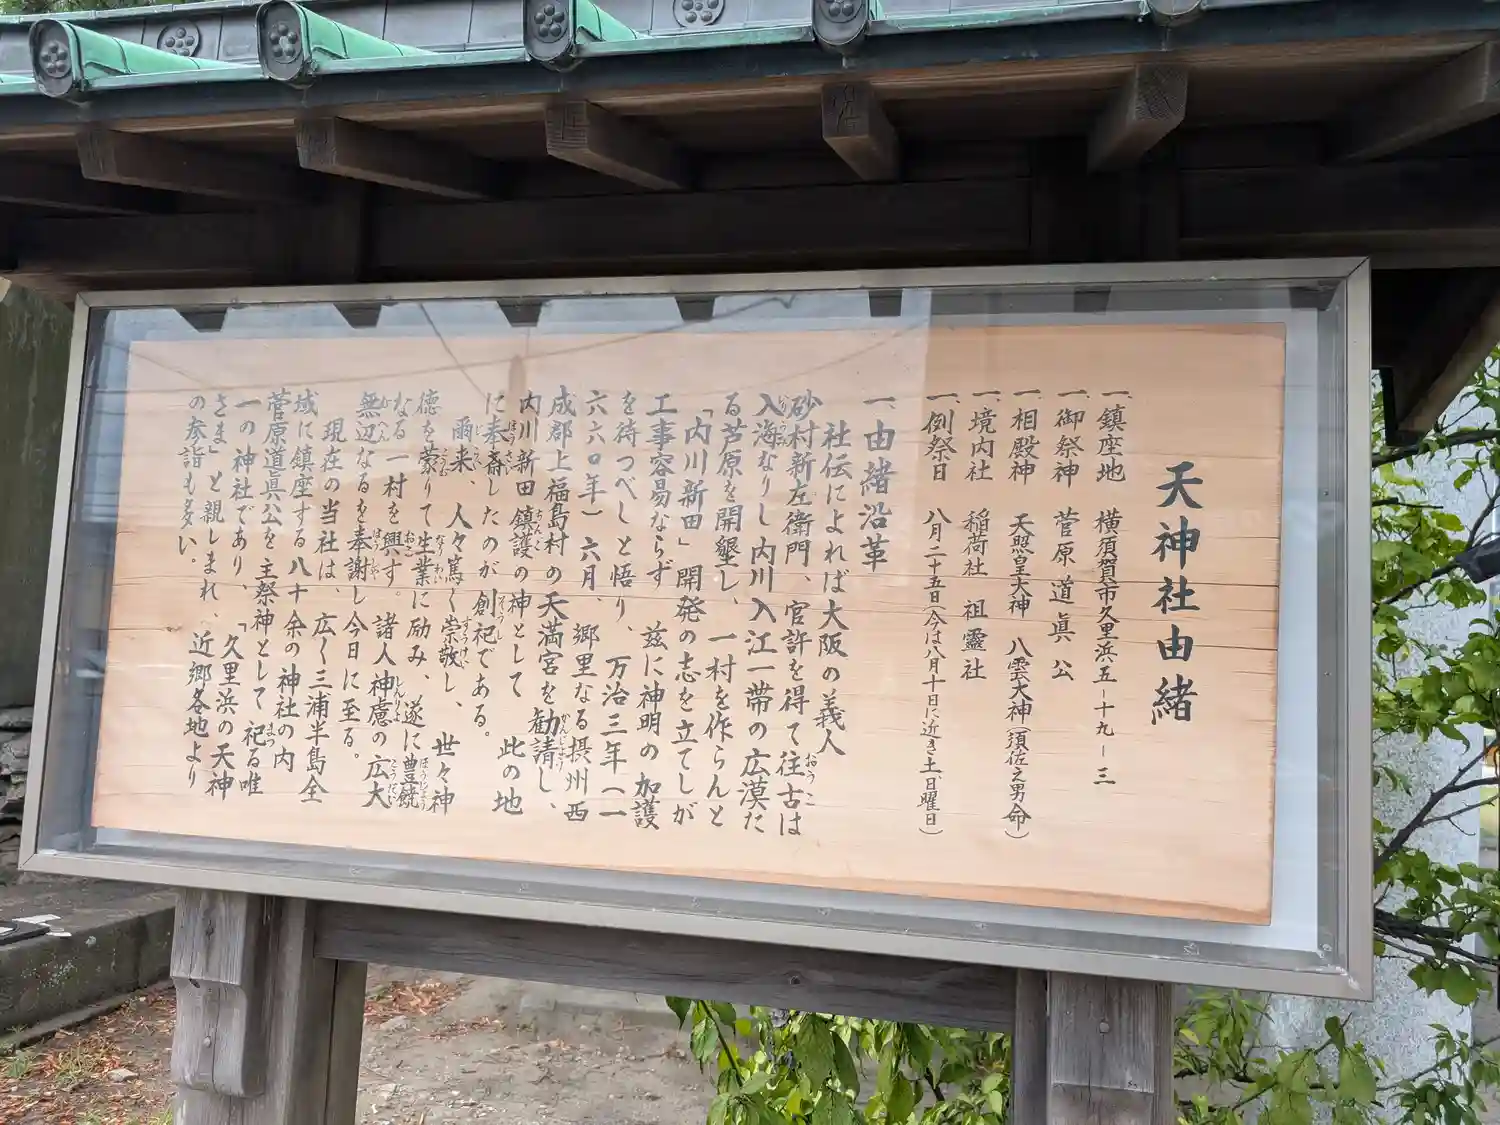 天神社由緒
一、鎮座地 横須賀市久里浜五－十九－三
一、御祭神 菅原道眞公
一、相殿神 天照皇大神 八雲大神（須佐之男命）
一、境内社 稲荷社 祖靈社
一、例祭日 八月二十五日（今は八月十日に近き土日曜日）
一、由緒沿革
社伝によれば大阪の義人
砂村新左衛門、官許を得て往古は
入海なりし内川入江一帯の広漠た
る芦原を開墾し、一村を作らんと
「内川新田」開発の志を立てしが
工事容易ならず 茲に神明の加護
を待つべしと悟り、万治三年（一
六六〇年）六月、郷里なる摂州西
成郡上福島村の天満宮を勧請し、
内川新田鎮護の神として 此の地
に奉斎したのが創祀である。
爾来、人々篤く崇敬し、世々神
徳を蒙りて生業に励み、遂に豊饒
なる一村を興す。諸人神慮の広大
無辺なるを奉謝し今日に至る。
現在の当社は、広く三浦半島全
域に鎮座する八十余の神社の内
菅原道眞公を主祭神として祀る唯
一の神社であり、「久里浜の天神
さま」と親しまれ、近郷各地より
の参詣も多い。